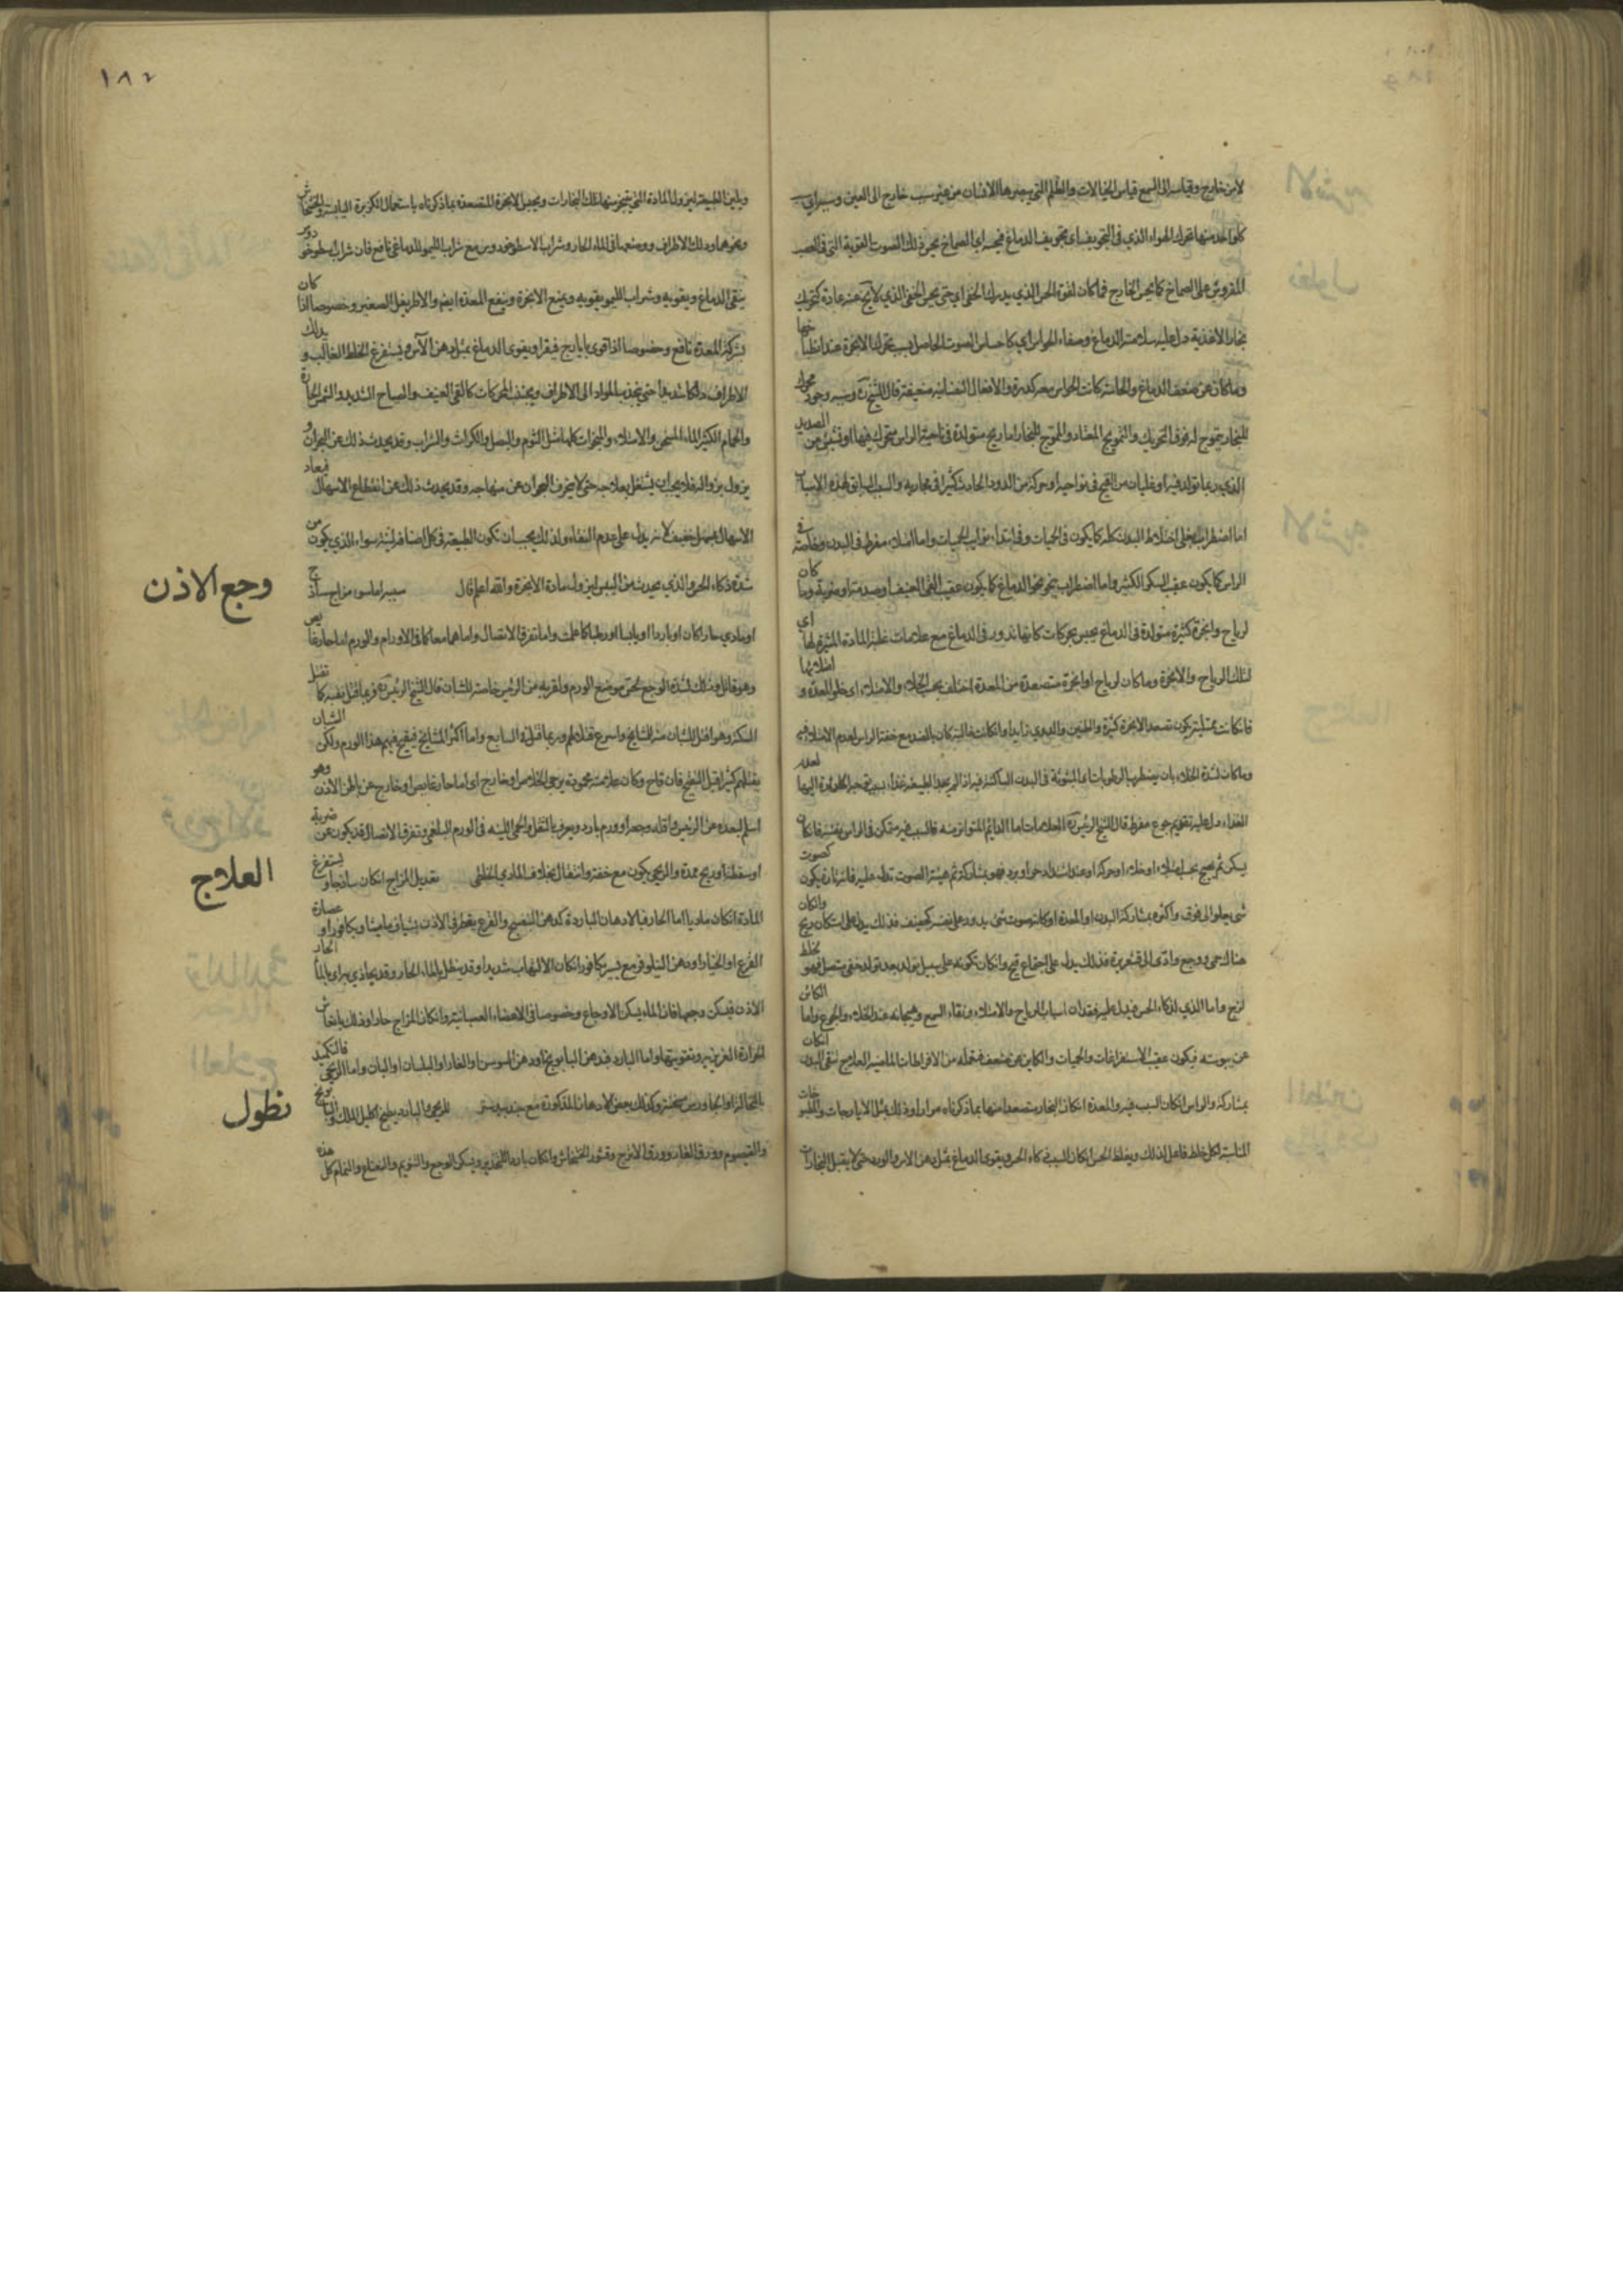 لامن خارج وقياسه الى السمع قياس الخيالات والظلم التي يبصرها الانسان من غير سبب خارج الى العين وسببه
كل واحد منها تحرك الهواء الذي في التجويف اي تجويف الدماغ فيحس اي الصماخ بحركة ذلك الصوت
المفروش على الصماخ كما يحس الخارج فما كان لقوة الحس الذي يدرك الخفي اي حتى يحس الخفي الذي لا يحس عنه عادة كتحريك
بخار الاغذية دل عليه سلامة الدماغ وصفاء الحواس اي كاحساس الصوت الحاصل بسبب تحرك الابخرة عند
وما كان عن ضعف الدماغ والحاسة كانت الحواس معه كدرة والافعال النفسانية ضعيفة قال الشيخ وسببه وجود محرك
للبخار بتموج له فوق التحريك والتمويج المعتاد والمموج للبخار اما ريح متولدة في ناحية الراس متحرك فيها او نشيش من الصديد
الذي ربما تولد فيه او غليان من القيح في نواحيه او حركة من الدود الحادث كثيرا في مجاريه والسبب السابق لهذه الاسباب
اما اضطراب يغلي اخلاط البدن كله كما يكون في الحيات وفي ابتداء نوائب الحميات واما امتلاء مفرط في البدن وخاصة في
الراس كما يكون عقيب السكر الكثير واما اضطراب يخص نحو الدماغ كما يكون عقيب القي العنيف او صدمة او ضربة وما كان
لرياح وابخرة كثيرة متولدة في الدماغ يحس بحركات كانها تدور في الدماغ مع علامات غلبة المادة المثيرة لها اي
لتلك الرياح والابخرة وما كان لرياح او ابخرة متصعدة من المعدة اختلف بحسب الخلاء والامتلاء اي خلو المعدة و امتلائها
فان كانت ممتلية يكون تصعد الابخرة كثيرة والطنين والدوي زايدا وان كانت خالية كان بالضد مع خفة الراس لعدم الامتلاء فيه
وما كان لشدة الخلاء بان يضطر بها الرطوبات المبثوثة في البدن الساكنة فيه اذا لم يجد الطبيعة غذاء لعدم
الغذاء دل عليه تقويم جوع مفرط قال الشيخ الرئيس العلامات اما الدائم المتواتر منه فالسبب فيه متمكن في الراس نفسه فان كان
يسكن ثم يهيج بحسب امتلاء او خلاء او حركة او عند اشتداد حر او برد فهو بمشاركة ثم هيئة الصوت تدل عليه فانه تارة يكون كصوت
شي يعلوا الى فوق واكثره بمشاركة البدن او المعدة او كانه صوت شي يدور على نفسه كحفيف فذلك يدل على استكان ريح وان كان
هناك حمى ووجع وادى الى قشعريرة فذلك يدل على اجتماع قيح وان كان تكونه على سبيل تولد بعد تولد خفي متصل فهو لخلط
لزج واما الذي لذكاء الحس فيدل عليه فقدان اسباب الرياح والامتلاء ونقاء السمع وهيجانه عند الخلاء والجوع واما الكائن
عن يبوسة فيكون عقيب الاستفراغات والحميات والكاين عن ضعف فتعلمه من الافراطات الماضية العلاج تنقى البدن ان كان
بمشاركة والراس ان كان السبب فيه والمعدة ان كان البخار متصعدا منها بما ذكرناه مرارا وذلك بمثل الايارجات
المناسبة لكل خلط فاعل لذلك ويغلظ الحس ان كان السبب ذكاء الحس ويقوي الدماغ بمثل دهن الاس والورد حتى لا يقبل البخارات
١٨٢
ويلين الطبيعة ليزول المادة التي يتبخر منها تلك البخارات ويحبس الابخرة المتصعدة بما ذكرناه باستعمال الكزبرة اليابسة والخشخاش
ونحوهما ودلك الاطراف ووضعها في الماء الحار وشراب الاسطوخودوس مع شراب الليمو للدماغي نافع فان شراب اسطوخودوس
ينقي الدماغ ويقويه وشراب الليمو يقويه ويمنع الابخرة وينفع المعدة ايضا والاطريفل الصغير وخصوصا اذا كان
بشركة المعدة نافع وخصوصا اذا قوي بايارج فيقرا ويقوي الدماغ بمثل دهن الآس ويستفرغ الخلط الغالب و يدلك
الاطراف دلكا شديدا حتى يجذب المواد الى الاطراف ويجتنب المحركات كالقي العنيف والصياح الشديد والشمس الحارة
والحمام الكثير الماء المسخن والامتلاء والمبخرات كلها مثل الثوم والبصل والكراث والشراب وقد يحدث ذلك عن البحران و
يزول بزواله فلا يجب ان يشتغل بعلاجه حتى لا يحرف البحران عن منهاجه وقد يحدث ذلك عن انقطاع الاسهال فيعاد
الاسهال بمسهل خفيف لانه يدل على عدم النقاء ولذلك يجب ان تكون الطبيعة في كل اصنافه لينة سواء الذي يكون من
شدة ذكاء الحس والذي يحدث من اليبس ليزول مادة الابخرة والله اعلم قال
وجع الاذن
سببه اما سوء مزاج ساذج
او مادي حار كان او باردا او يابسا او رطبا كما علمت واما تفرق الاتصال واما هما معا كما في الاورام والورم اما حار غايص
وهو قاتل وذلك لشدة الوجع لحس موضع الورم ولقربه من الرئيس خاصة للشبان قال الشيخ الرئيس فربما قتل نفسه كما تقتل
السكتة وهو اقتل للشبان منه للمشايخ واسرع قتلا لهم وربما قتل في السابع واما اكثر المشايخ فيقيح فيهم هذا الورم ولكن الشبان
يقتلهم كثيرا قبل التقيح فان قاح وكان علامة محمودة يرجى الخلاص او خارج اي اما حار غايص او خارج عن باطن الاذن وهو
اسلم لبعده عن الرئيس واقله وجعا او ورم بارد ويعرف بالثقل والحمى اللينة في الورم البلغمي وتفرق الاتصال قد يكون عن ضربة
او سقطة او ريح ممددة والريحي يكون مع خفة وانتقال بخلاف المادي الخلطي
العلاج
تعديل المزاج ان كان ساذجا ويستفرغ
المادة ان كان ماديا اما الحار فبالادهان الباردة كدهن البنفسج والقرع يقطر في الاذن بشياف ماميثا وبكافور او عصارة
القرع او الخيار او دهن النيلوفر مع يسير كافور ان كان الالتهاب شديدا وقد ينطل بالماء الحار وقد يحاذى ببخار الماء الحار
الاذن فيسكن وجعها فان الماء يسكن الاوجاع وخصوصا في الاعضاء العصبانية وان كان المزاج حارا وذلك بانعاش
الحرارة الغريزية وتقويتها واما البارد فبدهن البابونج او دهن السوسن او الغار او البلسان او البان واما الريحي فالتكميد
بالنخالة او الجاورس مسخنة وكذلك بعض الادهان المذكورة مع جندبيدستر
نطول
للريحي والبارد يطبخ اكليل الملك والبابونج
والقيصوم وورق الغار وورق الاترج وقشور الخشخاش وان كان باردا للتخدير ويسكن الوجع والتنويم والنعناع والنمام كل هذه